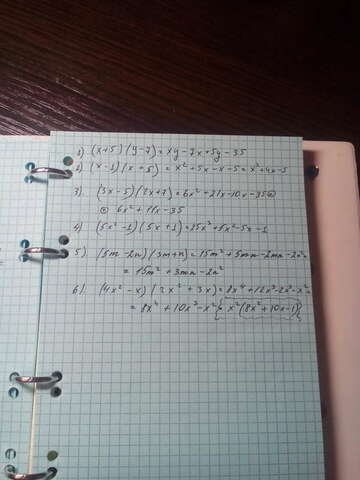 1) (x+5)(y-7)=xy-7x+5y-35
2) (x-1)(x+5)=x²+5x-x-5=x²+4x-5
3) (3x-5)(2x+7)=6x²+21x-10x-35⊜
⊜ 6x²+11x-35
4) (5x²-1)(5x+1)=25x³+5x²-5x-1
5) (5m-2n)(3m+n)=15m²+5mn-6mn-2n²
=15m²+3mn-2n²
6) (4x²-x)(2x²+3x)=8x⁴+12x³-2x³-3x²=
=8x⁴+10x³-x²{=x²(8x²+10x-1)}